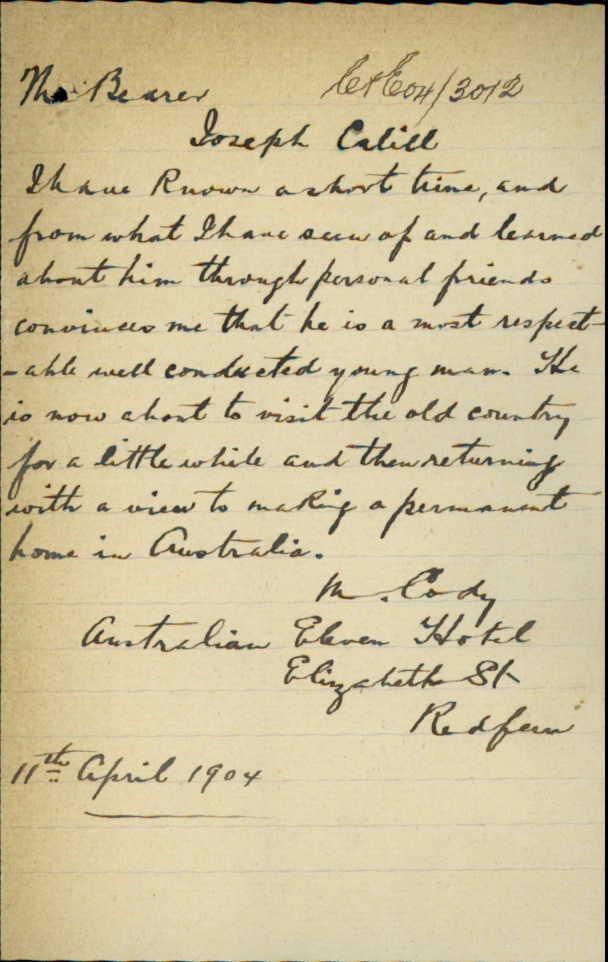 The Bearer C&E04/3012
Joseph Calill
I have Known a short time, and
from what I have seen of and learned
about him through personal friends
convinces me that he is a most respect-
-able well conducted young man. He
is now about to visit the old country
for a little while and then returning
with a view to making a permanent
home in Australia.
M. Cody
Australian Eleven Hotel
Elizabeth St
Redfern
11th April 1904